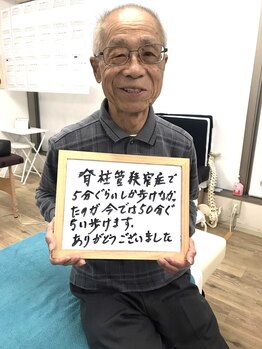 脊柱管狭窄症で
5分ぐらいしか歩けなか
たのが今では50分ぐ
らい歩けます。
ありがとうございました